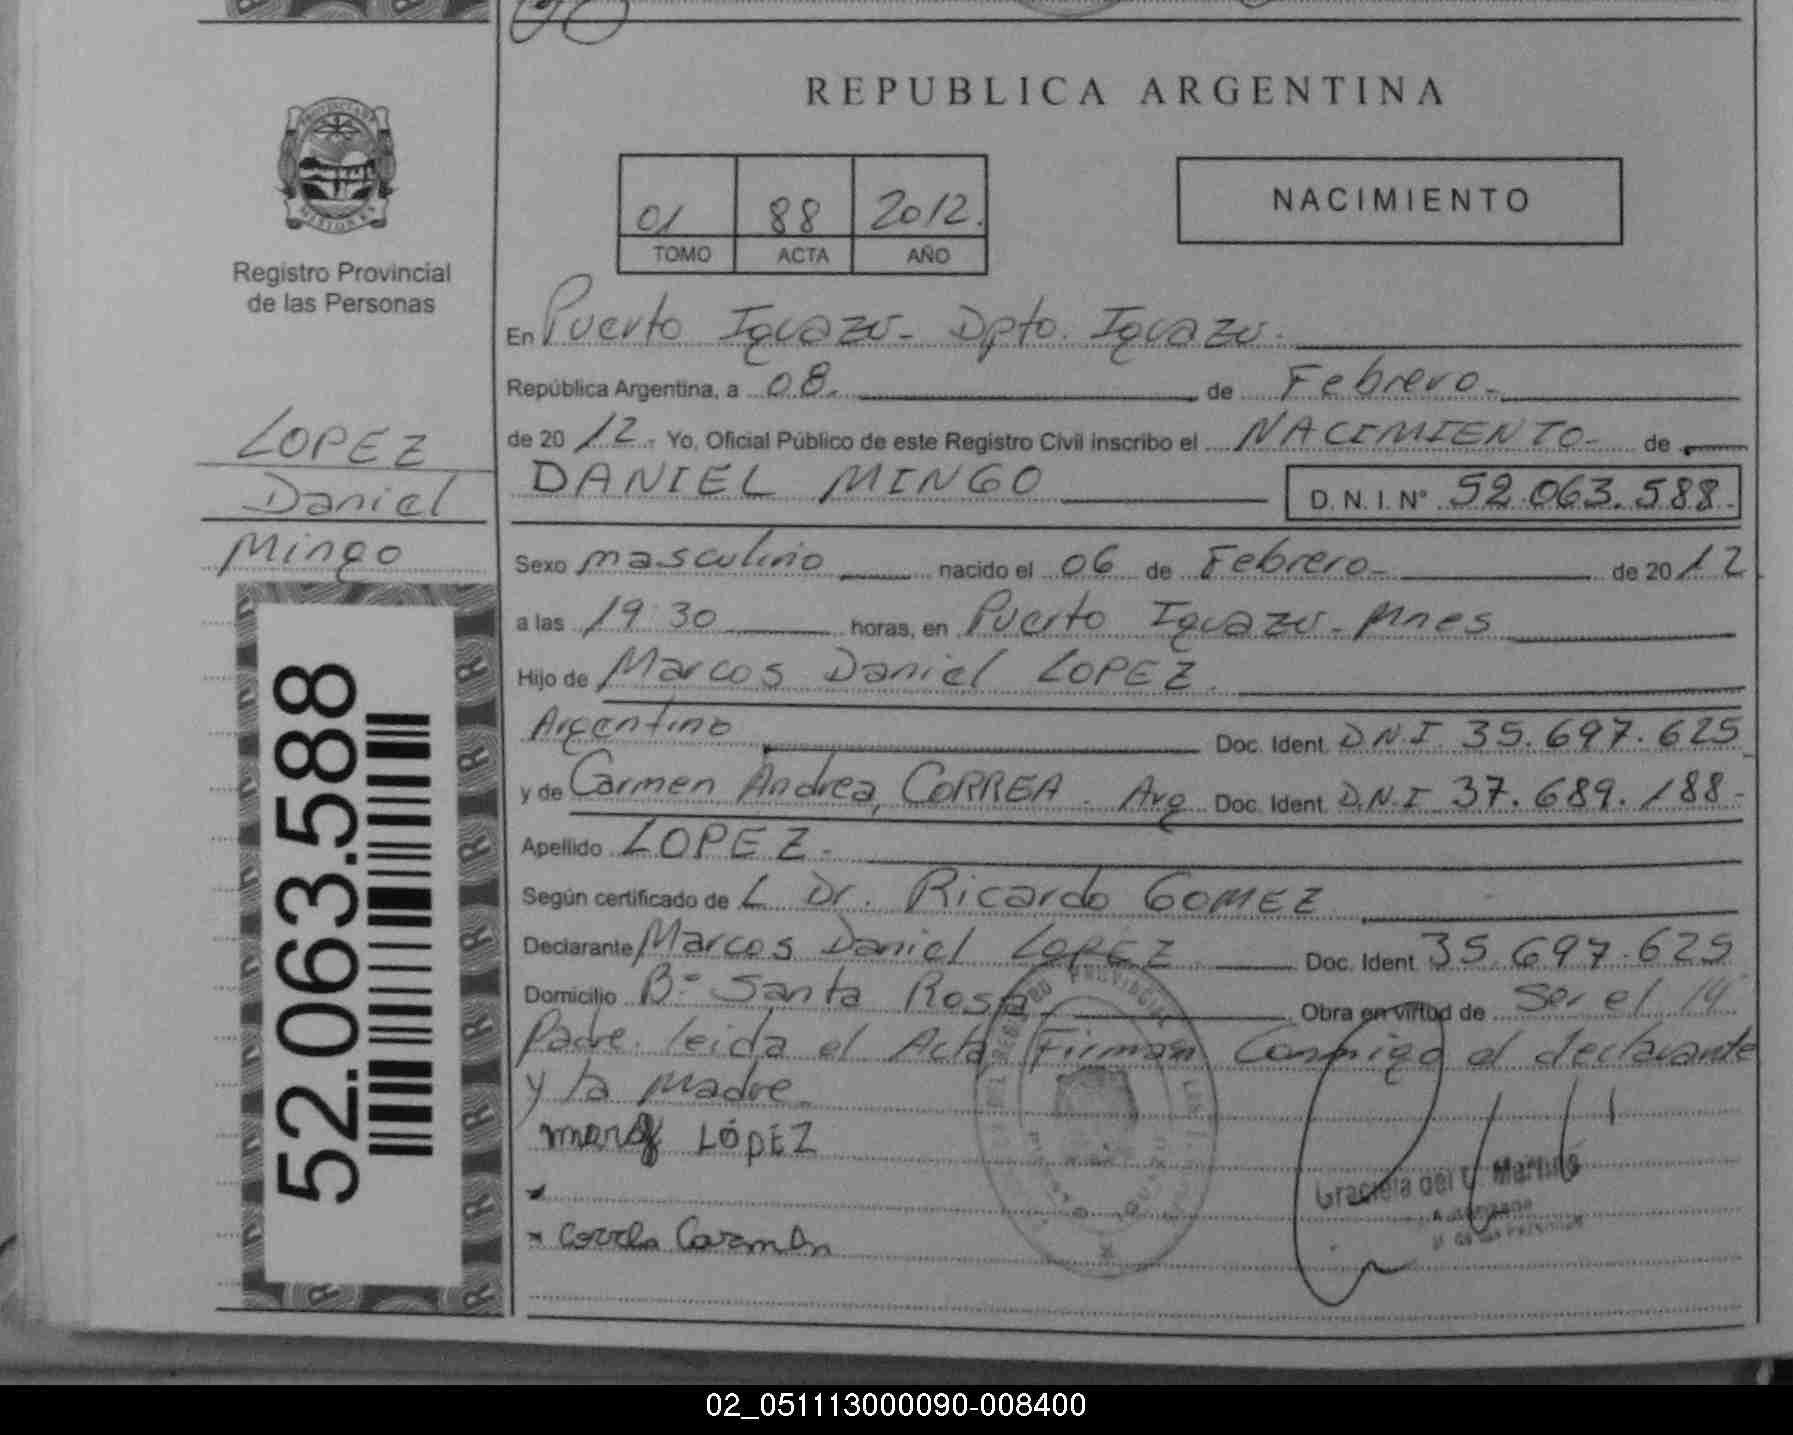 REPUBLICA ARGENTINA
01 88 2012.
TOMO ACTA AÑO
NACIMIENTO
PROVINCIA DE
MISIONES
Registro Provincial
de las Personas
LOPEZ
Daniel
Mingo
52.063.588
En Puerto Iguazu - Dpto. Iguazu.
República Argentina, a 08. de Febrero -
de 20 12 - Yo, Oficial Público de este Registro Civil inscribo el NACIMIENTO - de
DANIEL MINGO D. N. I. N° 52.063.588 -
Sexo masculino nacido el 06 de Febrero - de 20 12
a las 19:30 horas, en Puerto Iguazu - Mnes
Hijo de Marcos Daniel LOPEZ.
Argentino Doc. Ident. D.N.I 35.697.625
y de Carmen Andrea, CORREA. Arg Doc. Ident. D.N.I 37.689.188 -
Apellido LOPEZ -
Según certificado de L Dr. Ricardo GOMEZ
Declarante Marcos Daniel LOPEZ Doc. Ident. 35.697.625
Domicilio B° Santa Rosa Obra en virtud de Ser el
Padre. leida el Acta, Firman Conmigo el declarante
y la Madre -
LÓPEZ
Graciela del C.
x Correa Carmen
02_051113000090-008400